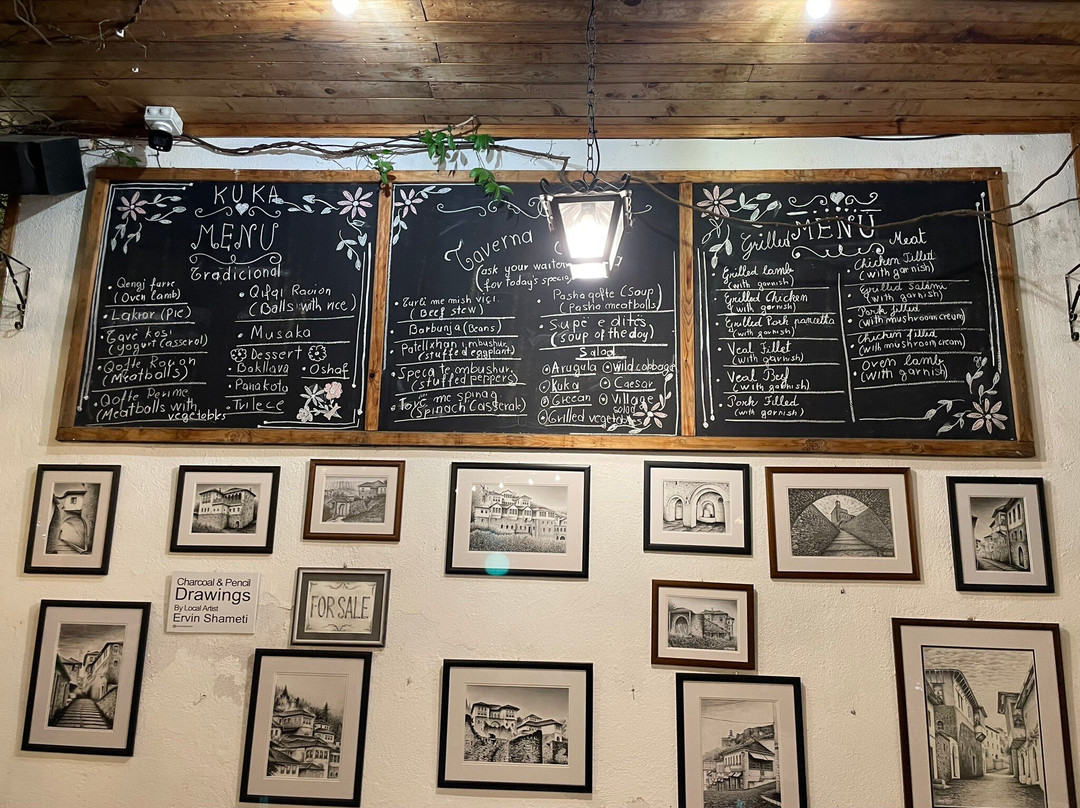 KUKA
MENU
Tradicional
• Qengj furre
(Oven Lamb)
• Lakror (Pie)
• Tavë kosi
(yogurt casserol)
• Qofte
(Meatballs)
• Qofte Perime
(Meatballs with
vegetables
• Qifqi Racion
(Balls with rice)
• Musaka
Dessert
• Bakllava • Oshaf
• Panakota
• Trileçe
Taverna
(ask your waiter
for Today's
• Turli me mish viçi
(Beef stew)
• Barbunja (Beans)
(stuffed eggplant)
• Speca te mbushur
(stuffed peppers)
me spinaq
(Spinach Casserol)
• Pasha qofte (Soup)
(Pasha meatballs)
• Supë e ditës
(soup of the day)
Salad
Arugula wild cabbage
Kuka Caesar
Grecan Village
salad
Grilled vegetables
MENU
Grilled Meat
• Grilled lamb
(with garnish)
• Grilled Chicken
(with garnish)
• Grilled Pork pancetta
(with garnish)
• Veal Fillet
(with garnish)
• Veal Beef
(with garnish)
• Pork Filled
(with garnish)
• Chicken Filled
(with garnish)
• Grilled Salami
(with garnish)
• Pork filled
(with mushroom cream)
• Chicken filled
(with mushroom cream)
• Oven lamb
(with garnish)
Charcoal & Pencil
Drawings
By Local Artist
Ervin Shameti
FOR SALE